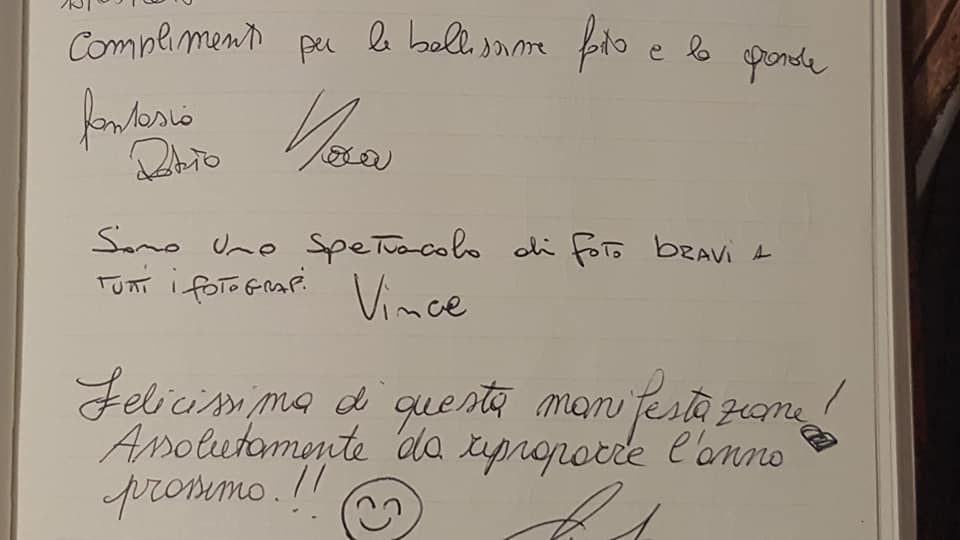 Complimenti per le bellissime foto e la grande
fantasia
Dario Nora
Sono uno spettacolo di foto bravi a
tutti i fotografi. Vince
Felicissima di questa manifestazione!
Assolutamente da riproporre l'anno
prossimo.!!